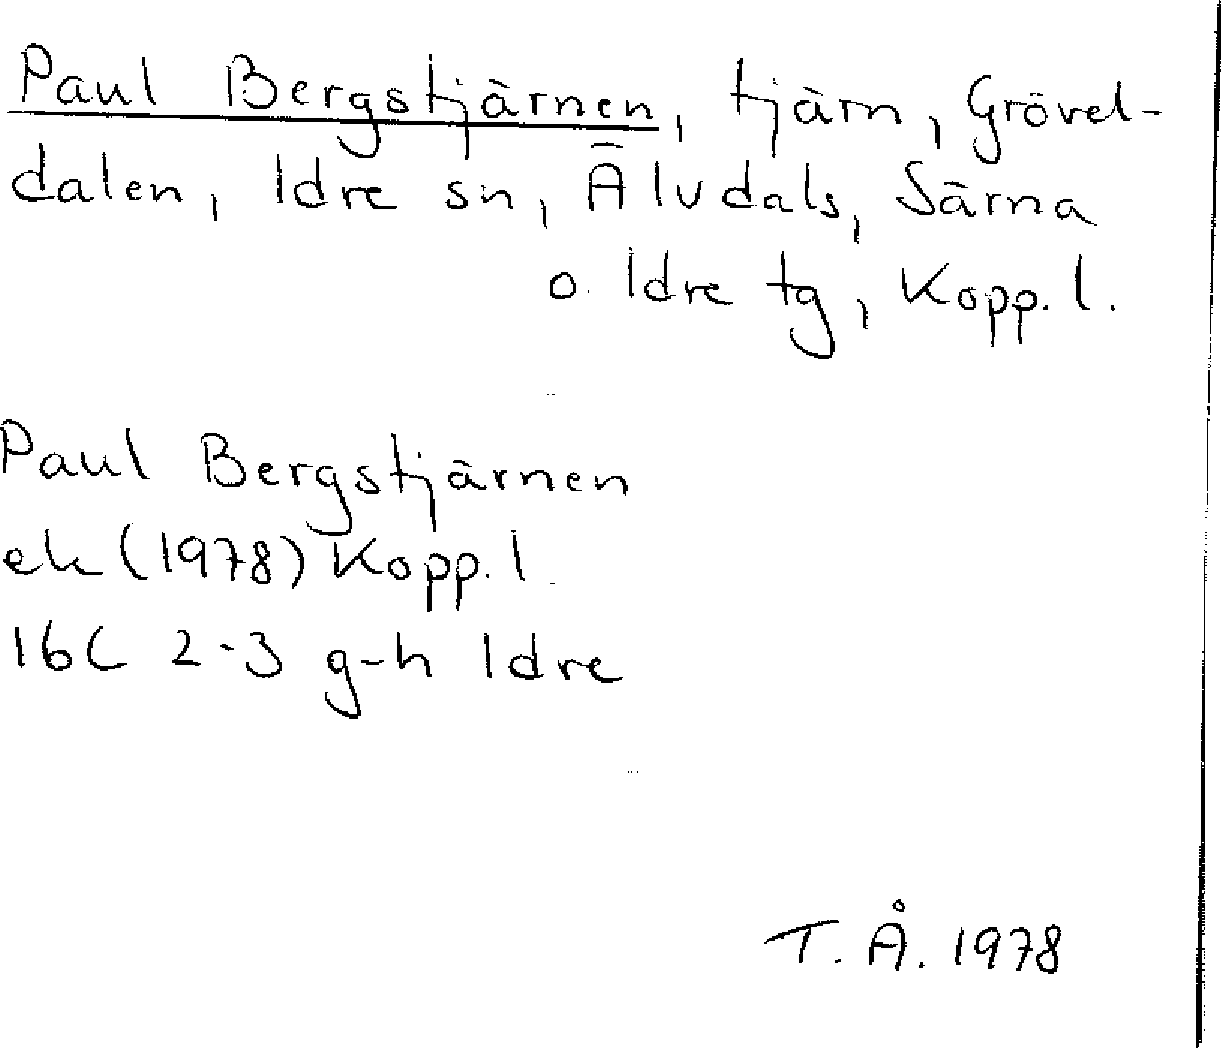 Paul Bergstjärnen, tjärn, Grövel-
dalen, Idre sn, Älvdals, Särna
o. Idre tg, Kopp. l.
Paul Bergstjärnen
ek (1978) Kopp. l.
16C 2-3 g-h Idre
T. Å. 1978